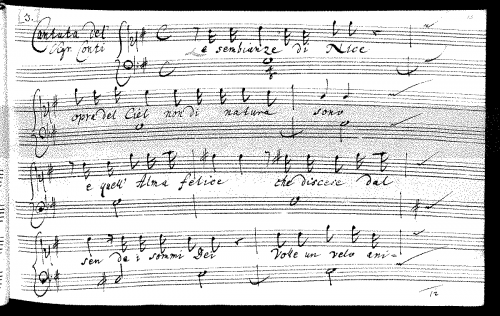 3.
Cantata del
Sigr. Conti
Le sembianze di Nice
opra del Ciel non di natura sono
e quell' Alma felice che discese dal
sen da i sommi Dei Volle un velo ani-
12